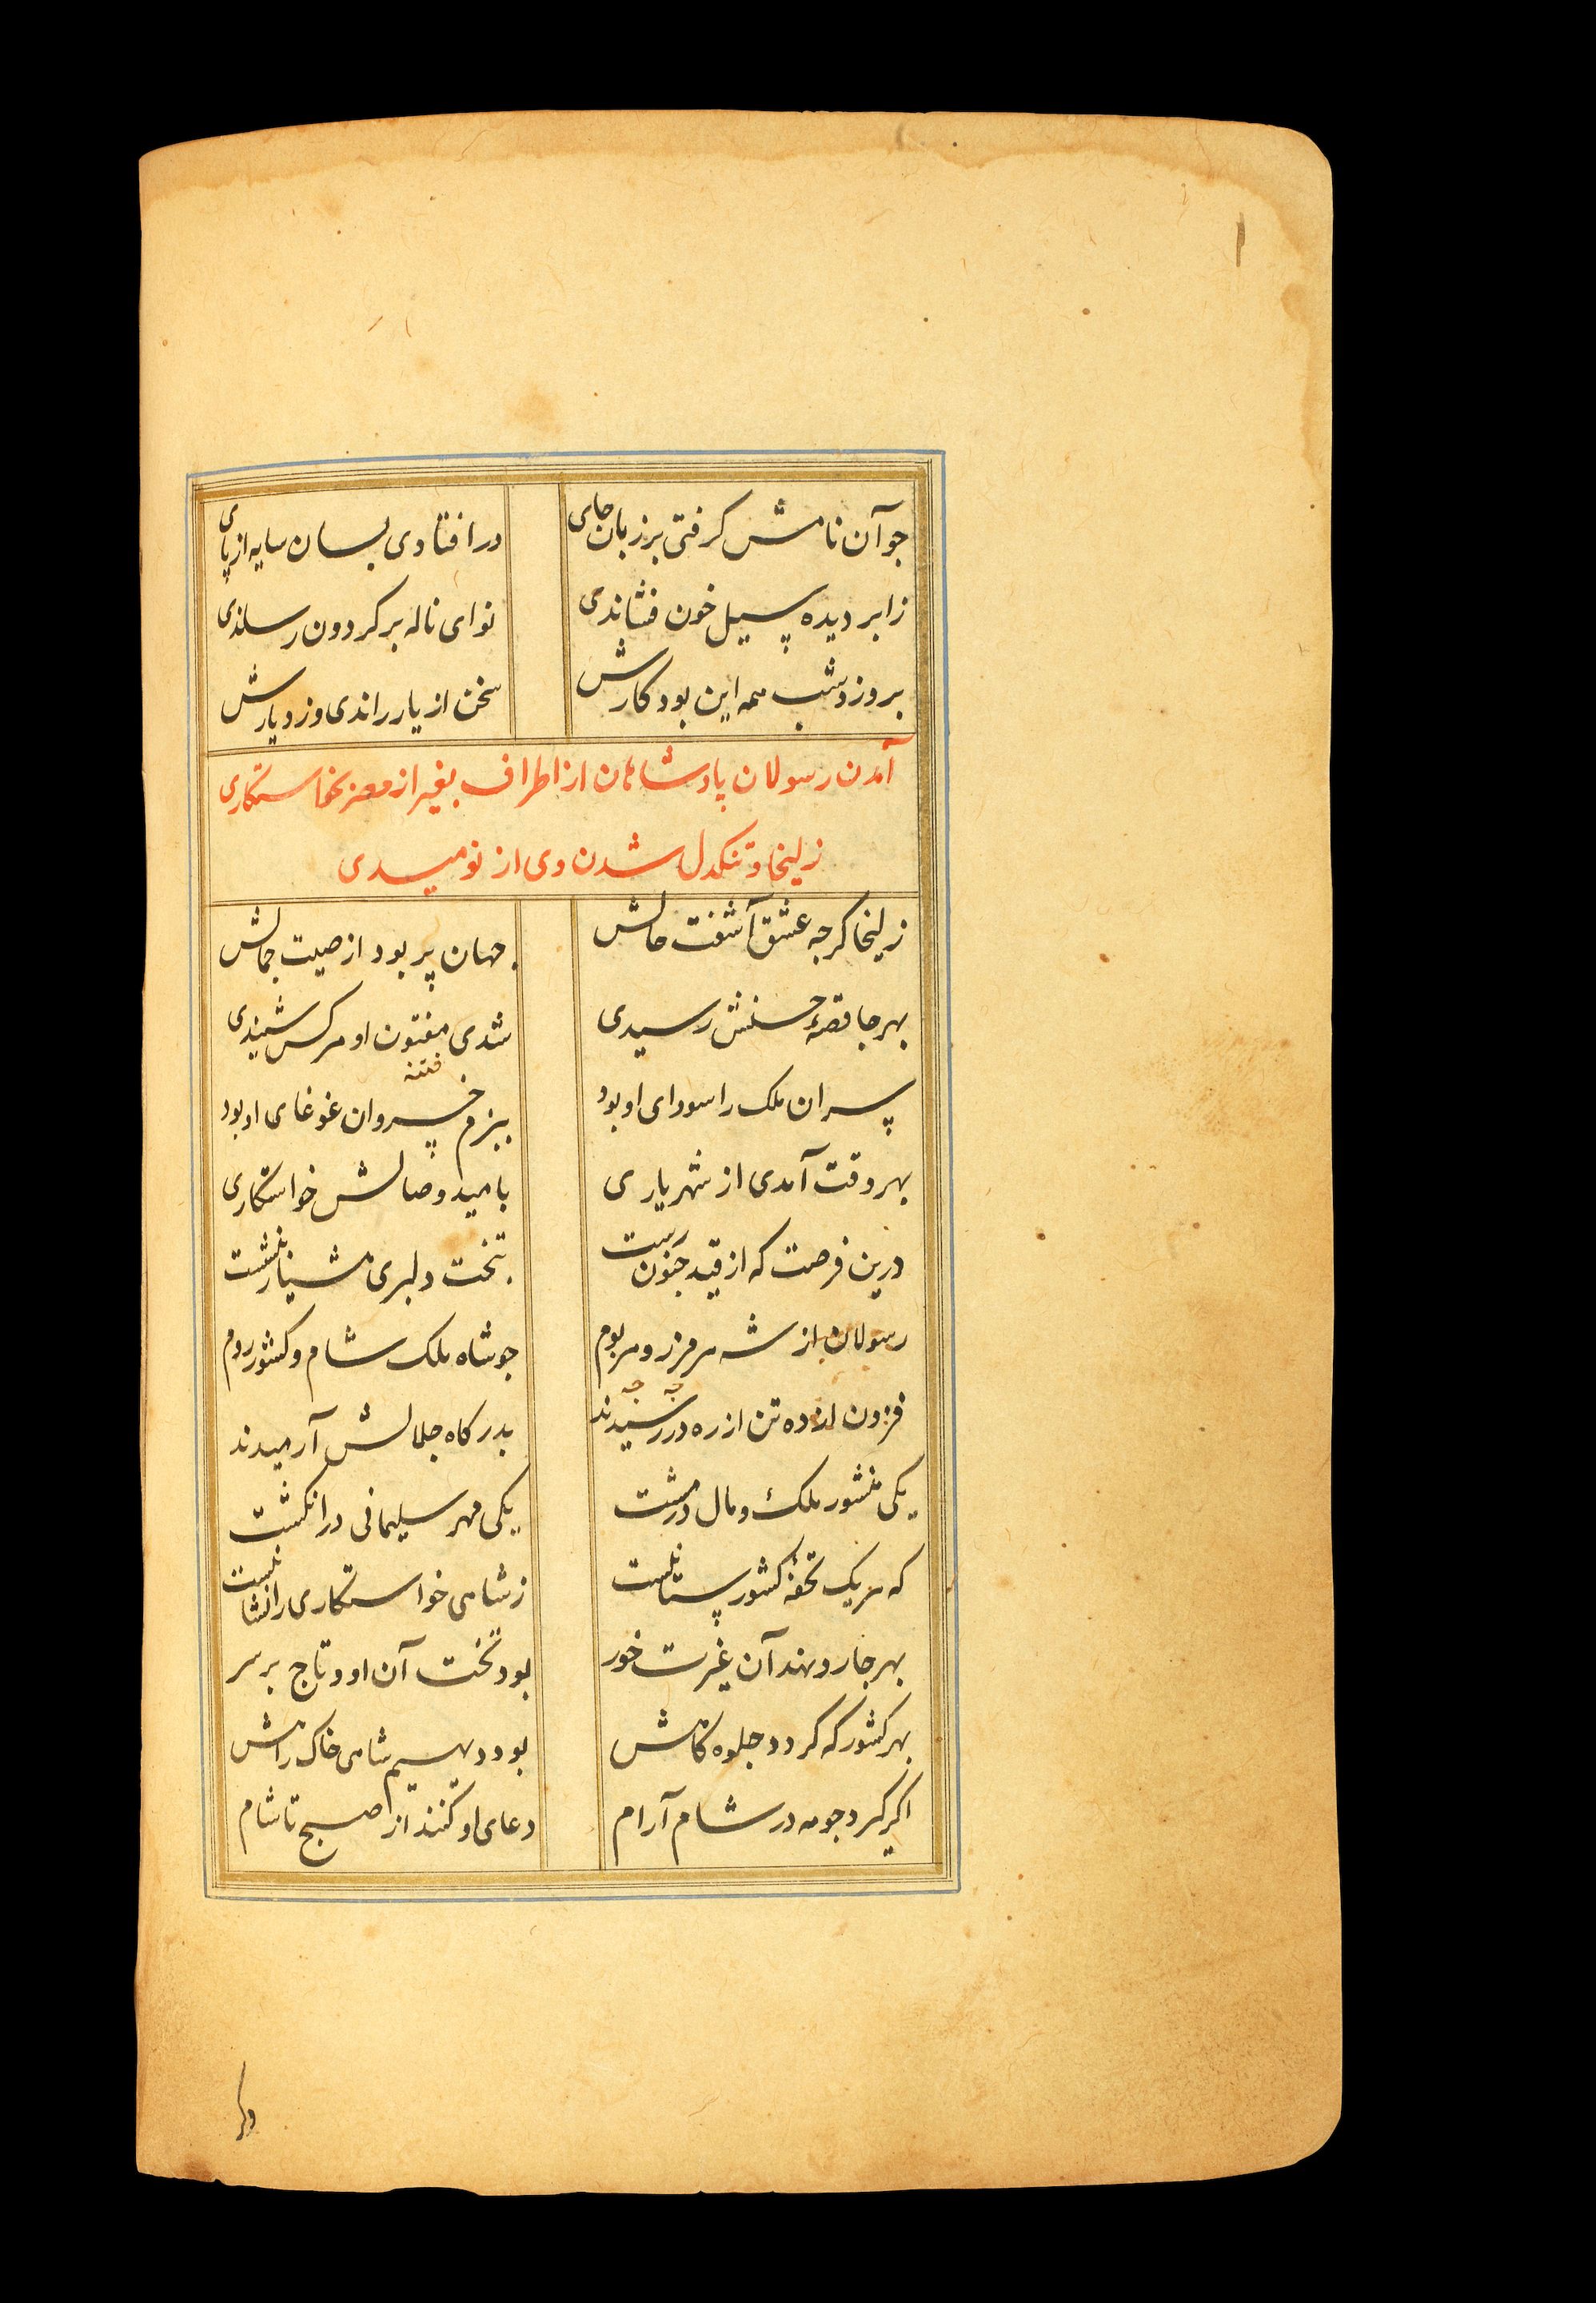 ۱
چو آن نامش گرفتی بر زبان جای
در افتادی بسان سایه از پای
ز ابر دیده سیل خون فشاندی
نوای ناله بر گردون رساندی
بروز و شب همه این بود کارش
سخن از یار راندی وز دیارش
آمدن رسولان پادشاهان از اطراف بغیر از مصر بخواستکاری
زلیخا و تنکدل شدن وی از نومیدی
زلیخا کرچه عشق آشفت حالش
جهان پر بود از صیت جمالش
بهر جا قصهٔ حسنش رسیدی
شدی مفتون او هرکس شنیدی
فتنه
سران ملک را سودای او بود
ببزم خسروان غوغای او بود
بهر وقت آمدی از شهریاری
بامید وصالش خواستکاری
درین فرصت که از قید جنون رست
بتخت دلبری هشیار بنشست
رسولان از شه هر مرز و هر بوم
چو شاه ملک شام و کشور روم
فزون از ده تن از ره در رسیدند
بدرکاه جلالش آرمیدند
یکی منشور ملک و مال در مشت
یکی مهر سلیمانی در انکشت
که هر یک تحفهٔ کشور ستانیست
ز شاهی خواستکاری را نشانیست
بهر جا رو نهد آن غیرت خور
بود تخت آن او و تاج بر سر
بهر کشور که کردد جلوه کاهش
بود دیهیم شاهی خاک راهش
اکر کیرد چو مه در شام آرام
دعای او کنند از صبح تا شام